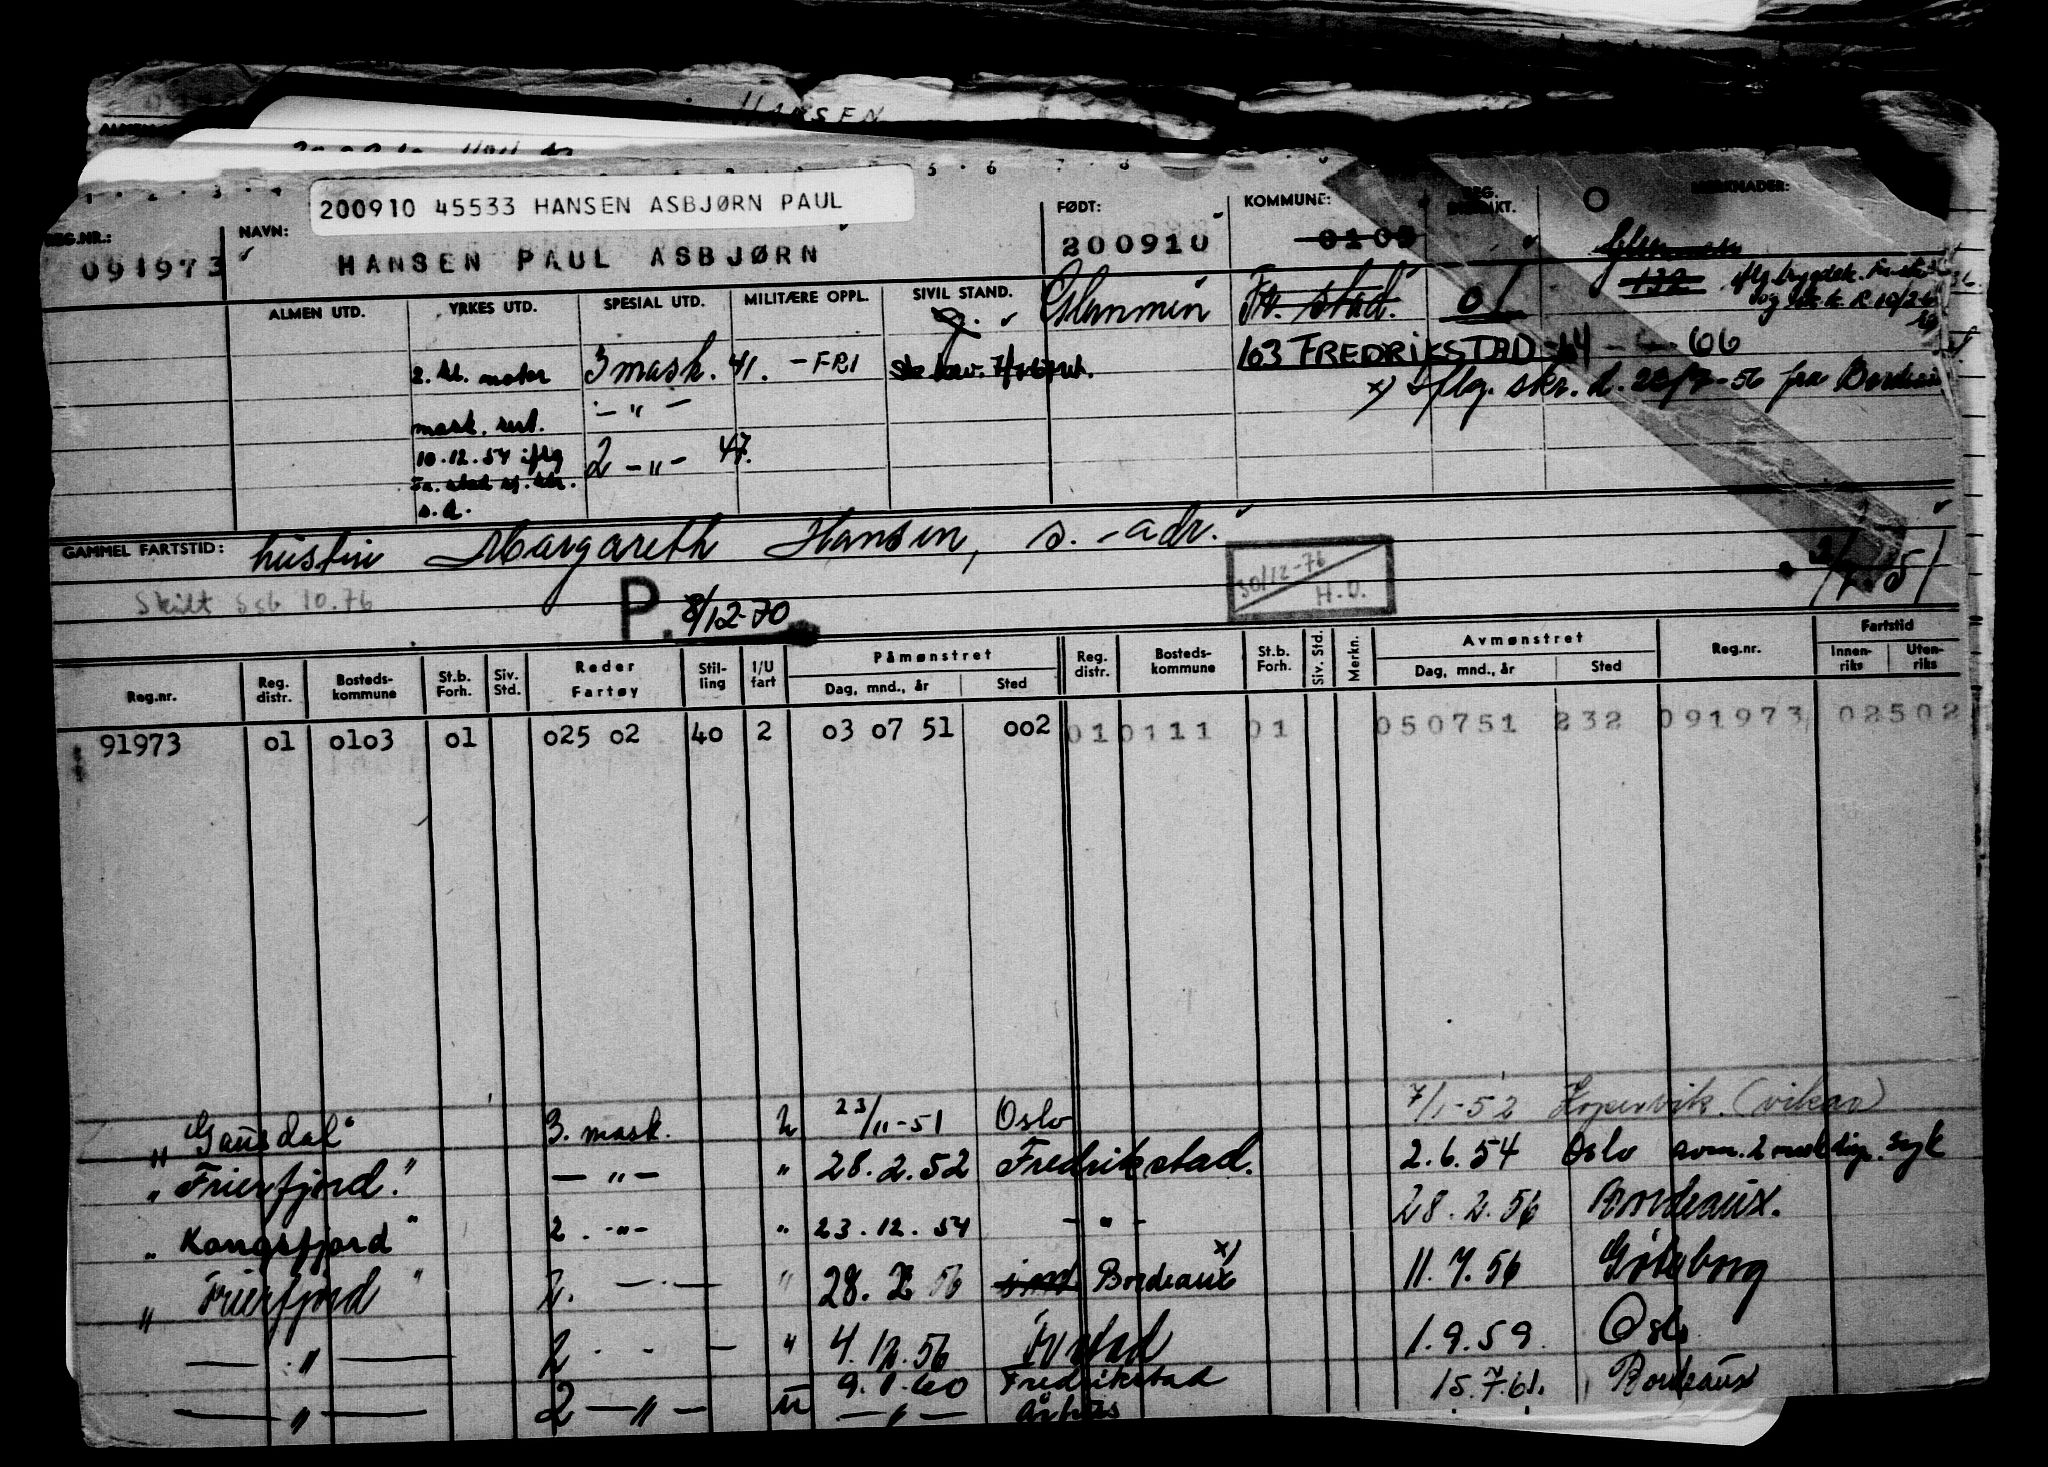 HANSEN
200910 45533 HANSEN ASBJØRN PAUL
REG.NR.: 091973
NAVN: HANSEN PAUL ASBJØRN
FØDT: 200910
KOMMUNE: 0103
MERKNADER:
ALMEN UTD. YRKES UTD. SPESIAL UTD. MILITÆRE OPPL. SIVIL STAND.
Glemmen Fr. stad. 01
132
2. kl. motor 3 mask. 41. - FRI
103 FREDRIKSTAD 14 - - 66
x) Iflg. skr. d. 28/7-56 fra Bordeaux
mask. sert. - " -
10.12.54 iflg 2 - " - 47.
Fr. stad sj. ktr.
s. d.
GAMMEL FARTSTID: hustru Margareth Hansen, s. - adr.
Skilt Ssb 10.76
30/12-76 H.O.
P. 8/12-70
2/7-51
Reg.nr. Reg. distr. Bosteds-kommune St.b. Forh. Siv. Std. Reder Fartøy Stil-ling I/U fart Påmønstret Dag, mnd., år Sted Reg. distr. Bosteds-kommune St.b. Forh. Siv. Std. Merkn. Avmønstret Dag, mnd., år Sted Reg.nr. Fartstid Innen-riks Uten-riks
91973 01 0103 01 025 02 40 2 03 07 51 002 01 0111 01 050751 232 091973 02502
" "Gausdal" 3. mask. 2 23/11-51 Oslo 7/1-52 Kopervik. (vikar)
" Frierfjord." - " - " 28.2.52 Fredrikstad. 2.6.54 Oslo syk
" Kongsfjord " 2. - " - " 23.12.54 - " - 28.2.56 Bordeaux.
" Frierfjord " 2. - - " 28.2.56 Bordeaux x) 11.7.56 Gøteborg
- " - 2 - - - " 4.12.56 Fr stad 1.9.59. Oslo
- " - 2 - " - u 9.1.60 Fredrikstad 15.7.61. Bordeaux
- " - Århus